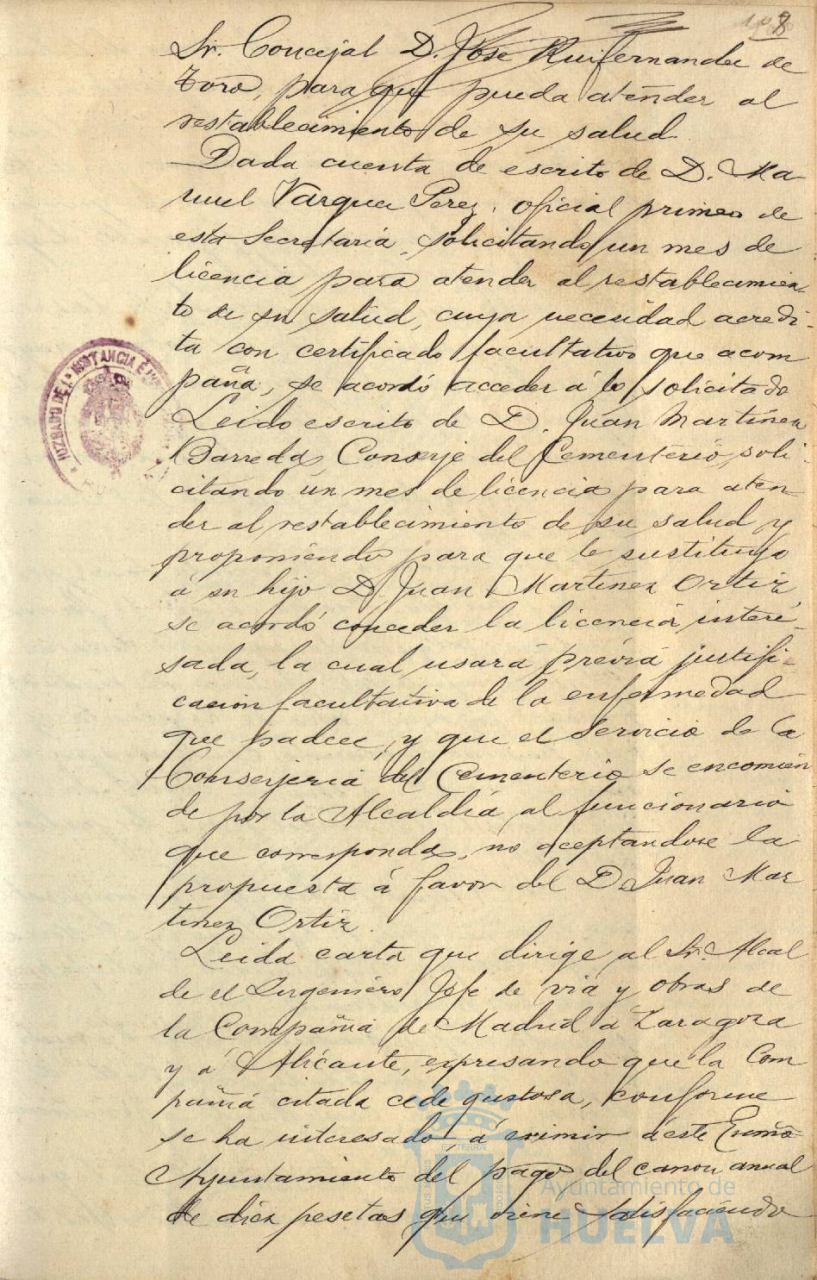 8
Sr. Concejal D. José Ruifernandez de
Toro, para que pueda atender al
restablecimiento de su salud
Dada cuenta de escrito de D. Ma
nuel Vargue Perez, oficial primero de
esta Secretaría, solicitando un mes de
licencia para atender al restablecimien-
to de su salud, cuya necesidad acredi-
ta con certificado facultativo que acom
paña, se acordó acceder á lo solicitado
Leido escrito de D. Juan Martinez
Barreda, Conserje del Cementerio, soli-
citando un mes de licencia para aten
der al restablecimiento de su salud y
proponiendo para que le sustituya
á su hijo D. Juan Martinez Ortiz,
se acordó conceder la licencia intere-
sada, la cual usará previa justifi-
cación facultativa de la enfermedad
que padece, y que el servicio de la
Conserjeria del Cementerio se encomien
de por la Alcaldía al funcionario
que corresponda, no aceptandose la
propuesta á favor del D. Juan Mar
tinez Ortiz.
Leida carta que dirige al Sr. Alcal
de el Ingeniero Jefe de via y obras de
la Compañia de Madrid á Zaragoza
y á Alicante, expresando que la Com
pañia citada cede gustosa, conforme
se ha interesado á eximir á este Excmo
Ayuntamiento del pago del canon anual
de diez pesetas que viene satisfaciendo
JUZGADO DE 1ª INSTANCIA É
Ayuntamiento de
HUELVA